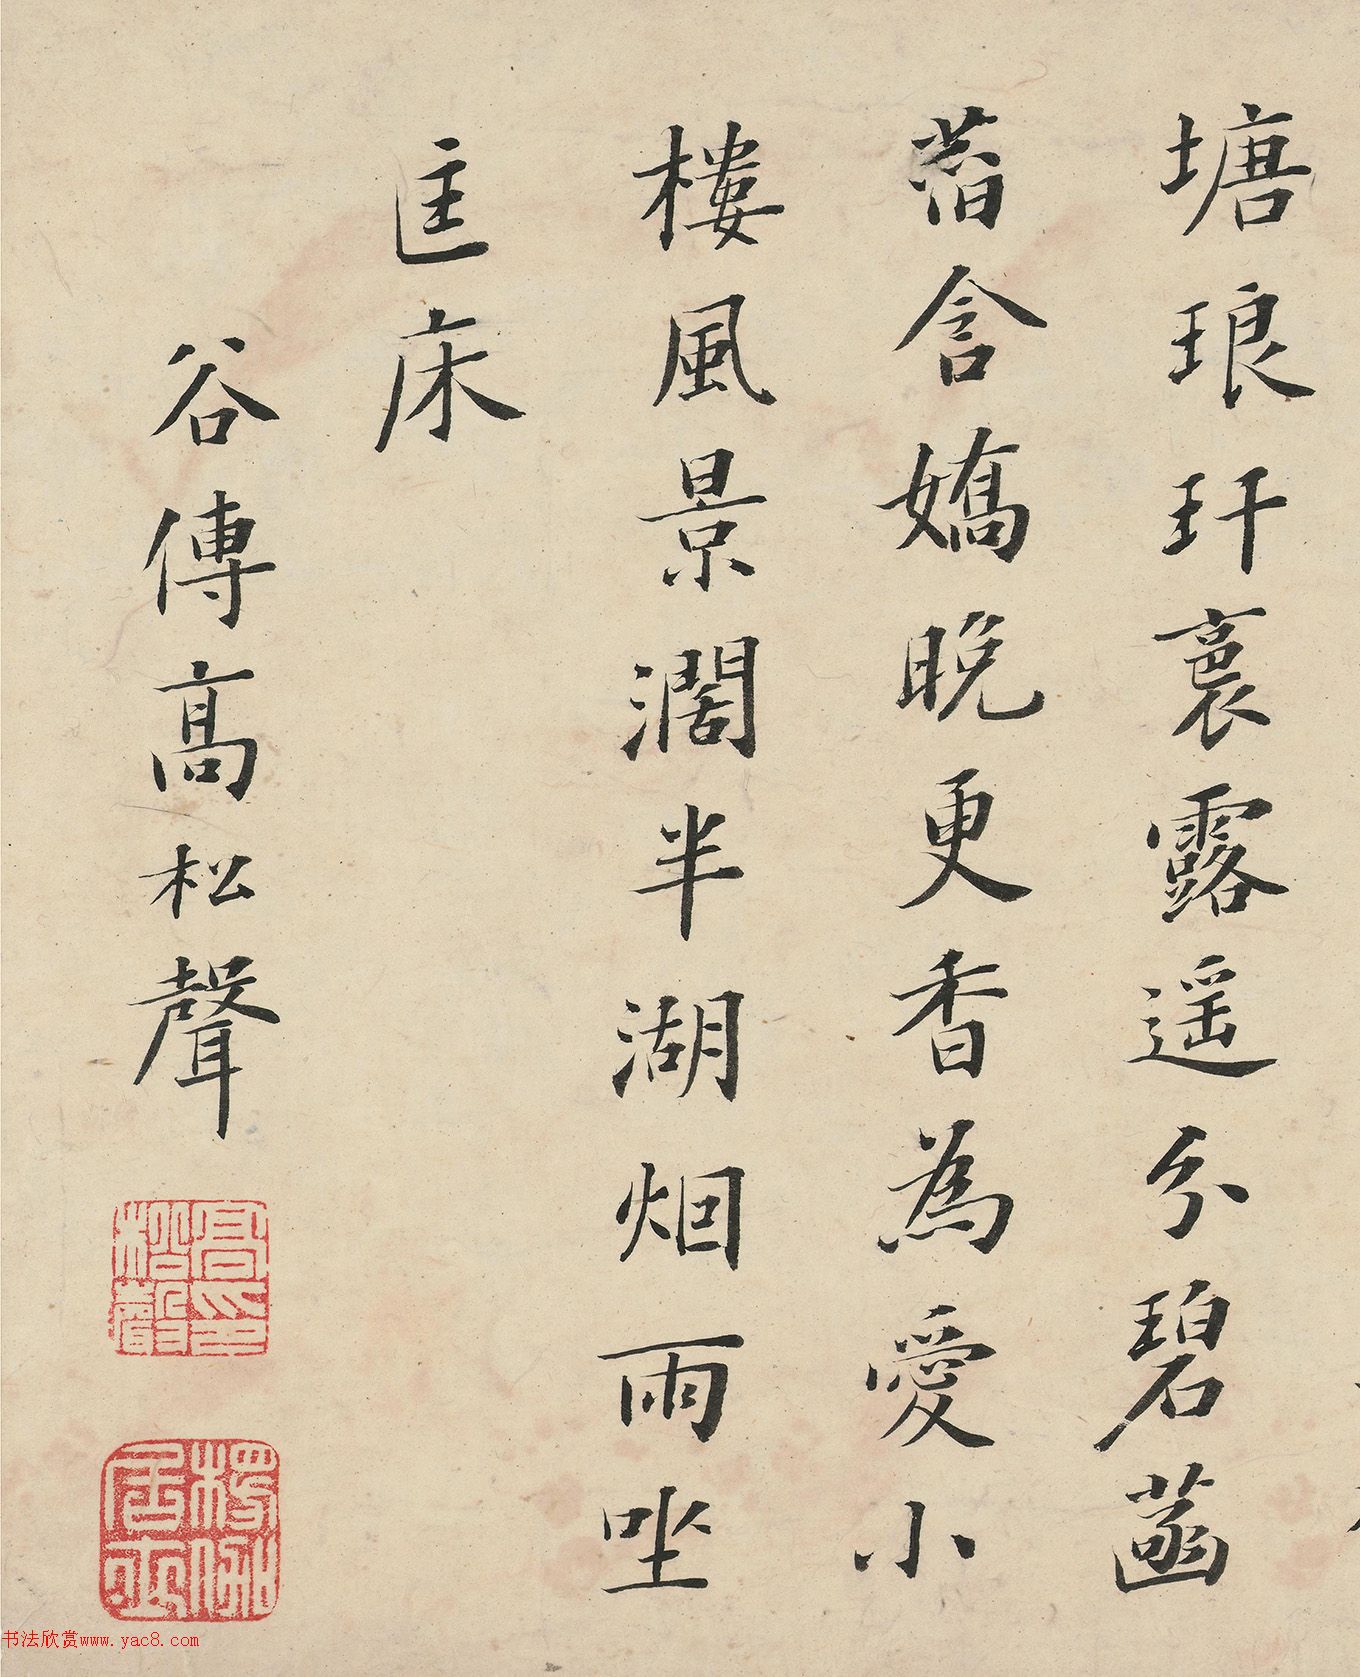 塘琅玕裏露遥分碧菡
萏含嬌晚更香為愛小
樓風景濶半湖烟雨坐
匡床
谷傳高松聲
高印松聲
书法欣赏www.yac8.com